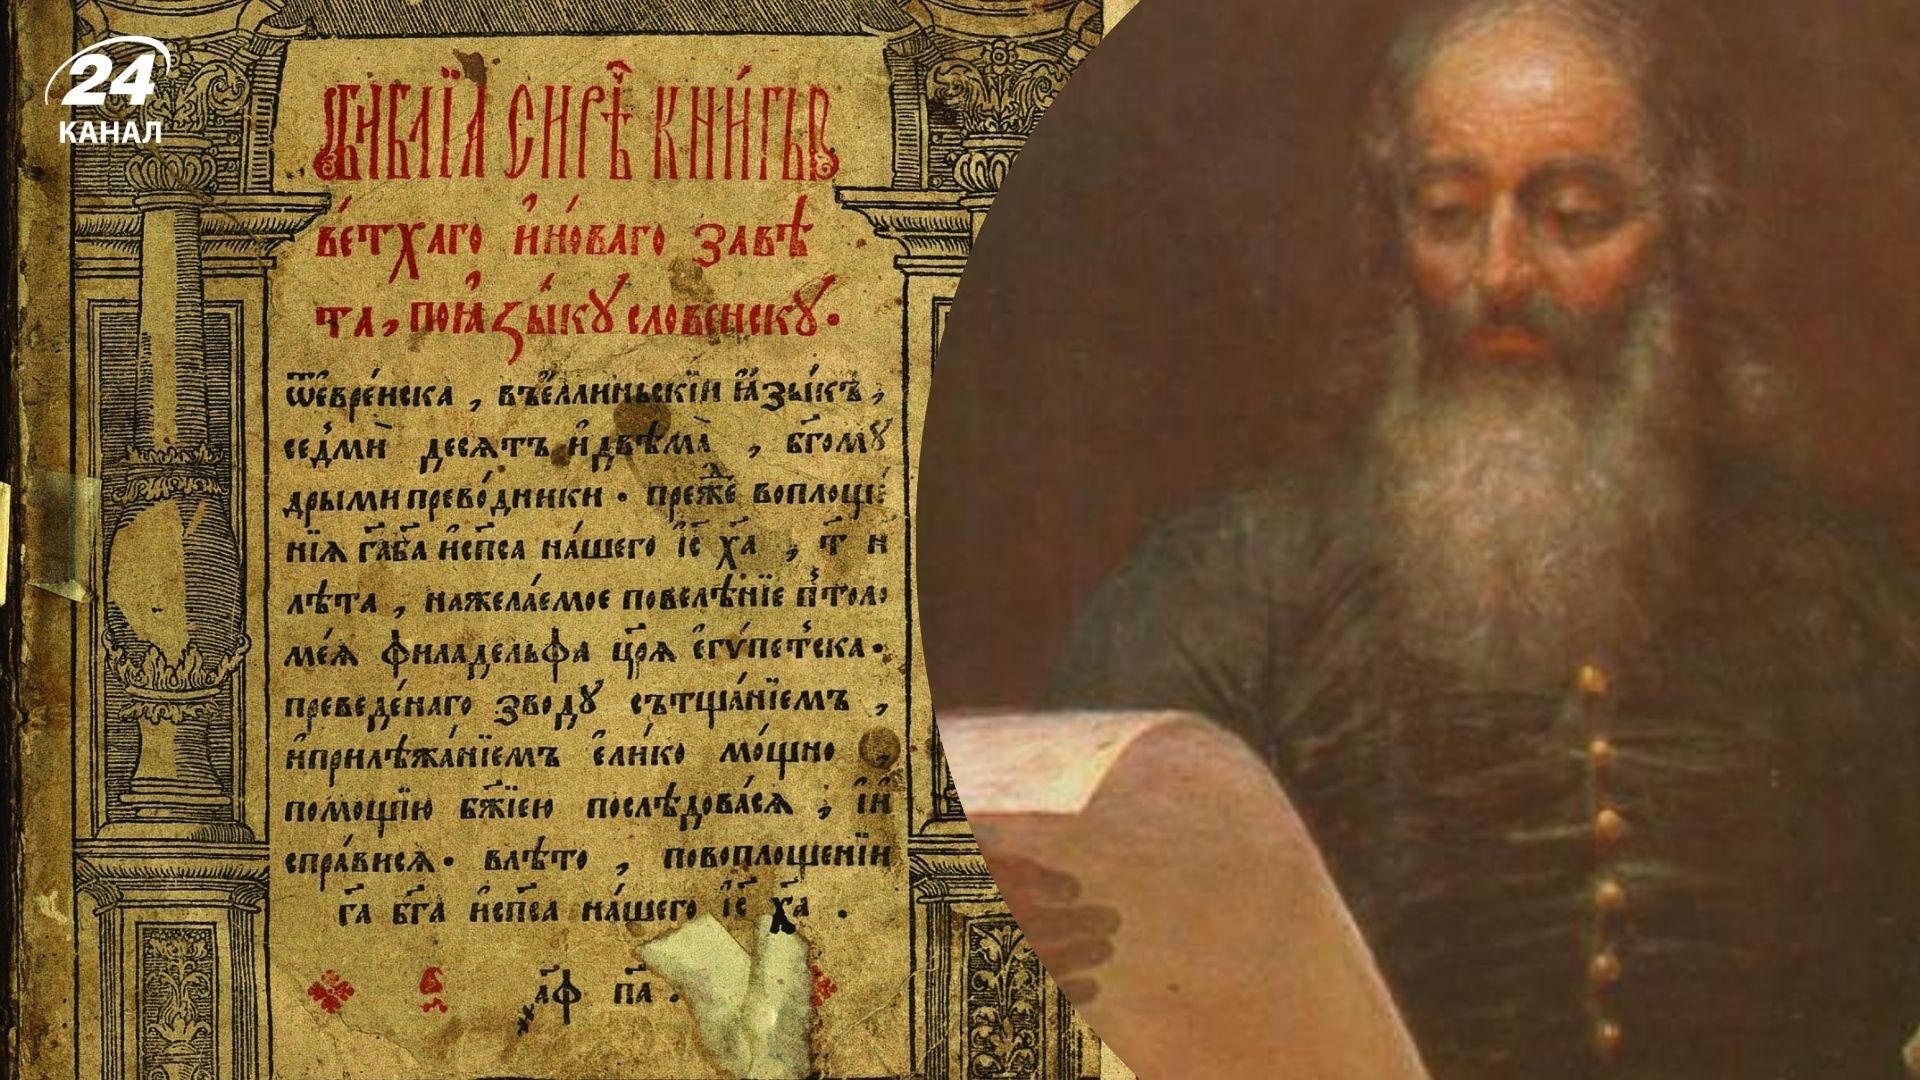 24
КАНАЛ
БИ́БЛЇѦ СИРѢ̑Ч КНИ́ГЫ
ве́тхаго и҆но́ваго завѣ
та, поꙗ҆зы́кꙋ словенскꙋ.
ѿе҆вре́йска, въе҆ллиньскїи ꙗ҆зы́къ,
седмѝ десѧтъ и҆двѣмà, бг҃омꙋ
дрыми прево́дники. преже воплоще́
нїѧ гд҃а бг҃а и҆сп҃са на́шего і҆с҃ х҃а, т҃ и
лѣта, нажела́емое повелѣ́нїе птоло
ме́ѧ филаде́льфа цр҃ѧ е҆гѵ́петска.
преведе́наго зводꙋ сътща́нїемъ,
и҆прилѣжа́нїемъ е҆ли́ко мо́щно
помощїю бж҃їею послѣдова́сѧ, і҆и҆
спра́висѧ. влѣто, повоплощенїи
гд҃а бг҃а и҆сп҃са на́шего і҆с҃ х҃а.
҂аф҃ па҃.